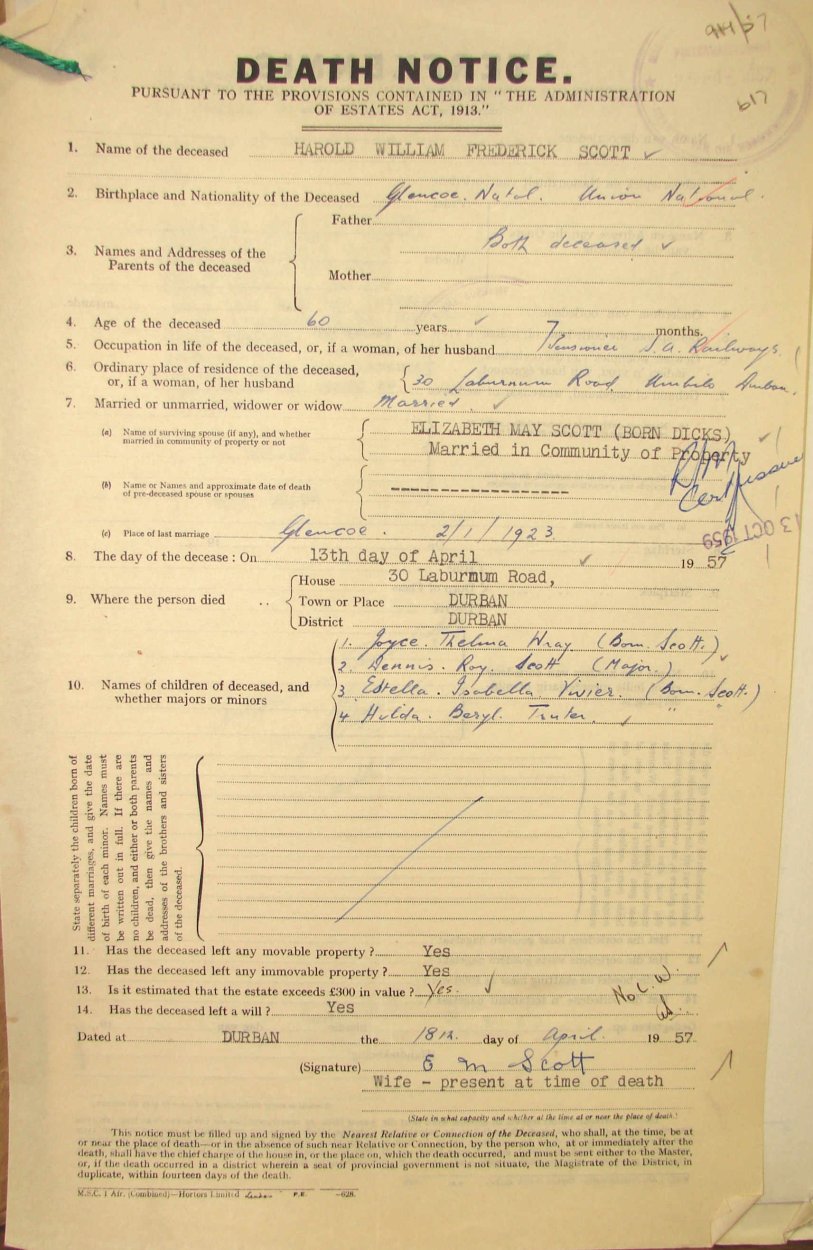 944/57
617
DEATH NOTICE.
PURSUANT TO THE PROVISIONS CONTAINED IN "THE ADMINISTRATION
OF ESTATES ACT, 1913."
1. Name of the deceased HAROLD WILLIAM FREDERICK SCOTT
2. Birthplace and Nationality of the Deceased Glencoe. Natal. Union National.
Father
3. Names and Addresses of the Parents of the deceased Both deceased
Mother
4. Age of the deceased 60 years 7 months.
5. Occupation in life of the deceased, or, if a woman, of her husband Pensioner S.A. Railways.
6. Ordinary place of residence of the deceased,
or, if a woman, of her husband 30 Laburnum Road, Umbilo Durban.
7. Married or unmarried, widower or widow Married.
(a) Name of surviving spouse (if any), and whether ELIZABETH MAY SCOTT (BORN DICKS)
married in community of property or not Married in Community of Property
(b) Name or Names and approximate date of death
of pre-deceased spouse or spouses ------------------
13 OCT 1959
(c) Place of last marriage Glencoe. 2/1/1923.
8. The day of the decease: On 13th day of April 1957
House 30 Laburmum Road,
9. Where the person died .. Town or Place DURBAN
District DURBAN
1. Joyce. Thelma Wray (Born. Scott.)
2. Dennis. Roy. Scott (Major.)
10. Names of children of deceased, and 3 Estella. Isabella Vivier. (Born. Scott.)
whether majors or minors 4. Hulda. Beryl. Truter. " "
State separately the children born of
different marriages, and give the date
of birth of each minor. Names must
be written out in full. If there are
no children, and either or both parents
be dead, then give the names and
addresses of the brothers and sisters
of the deceased.
11. Has the deceased left any movable property? Yes
12. Has the deceased left any immovable property? Yes
13. Is it estimated that the estate exceeds £300 in value? Yes.
14. Has the deceased left a will? Yes
Dated at DURBAN the 18th day of April. 1957.
(Signature) E M Scott
Wife - present at time of death
(State in what capacity and whether at the time at or near the place of death.)
This notice must be filled up and signed by the Nearest Relative or Connection of the Deceased, who shall, at the time, be at
or near the place of death—or in the absence of such near Relative or Connection, by the person who, at or immediately after the
death, shall have the chief charge of the house in, or the place on, which the death occurred, and must be sent either to the Master,
or, if the death occurred in a district wherein a seat of provincial government is not situate, the Magistrate of the District, in
duplicate, within fourteen days of the death.
M.S.C. 1 Air. (Combined)—Hortors Limited P.E. —628.